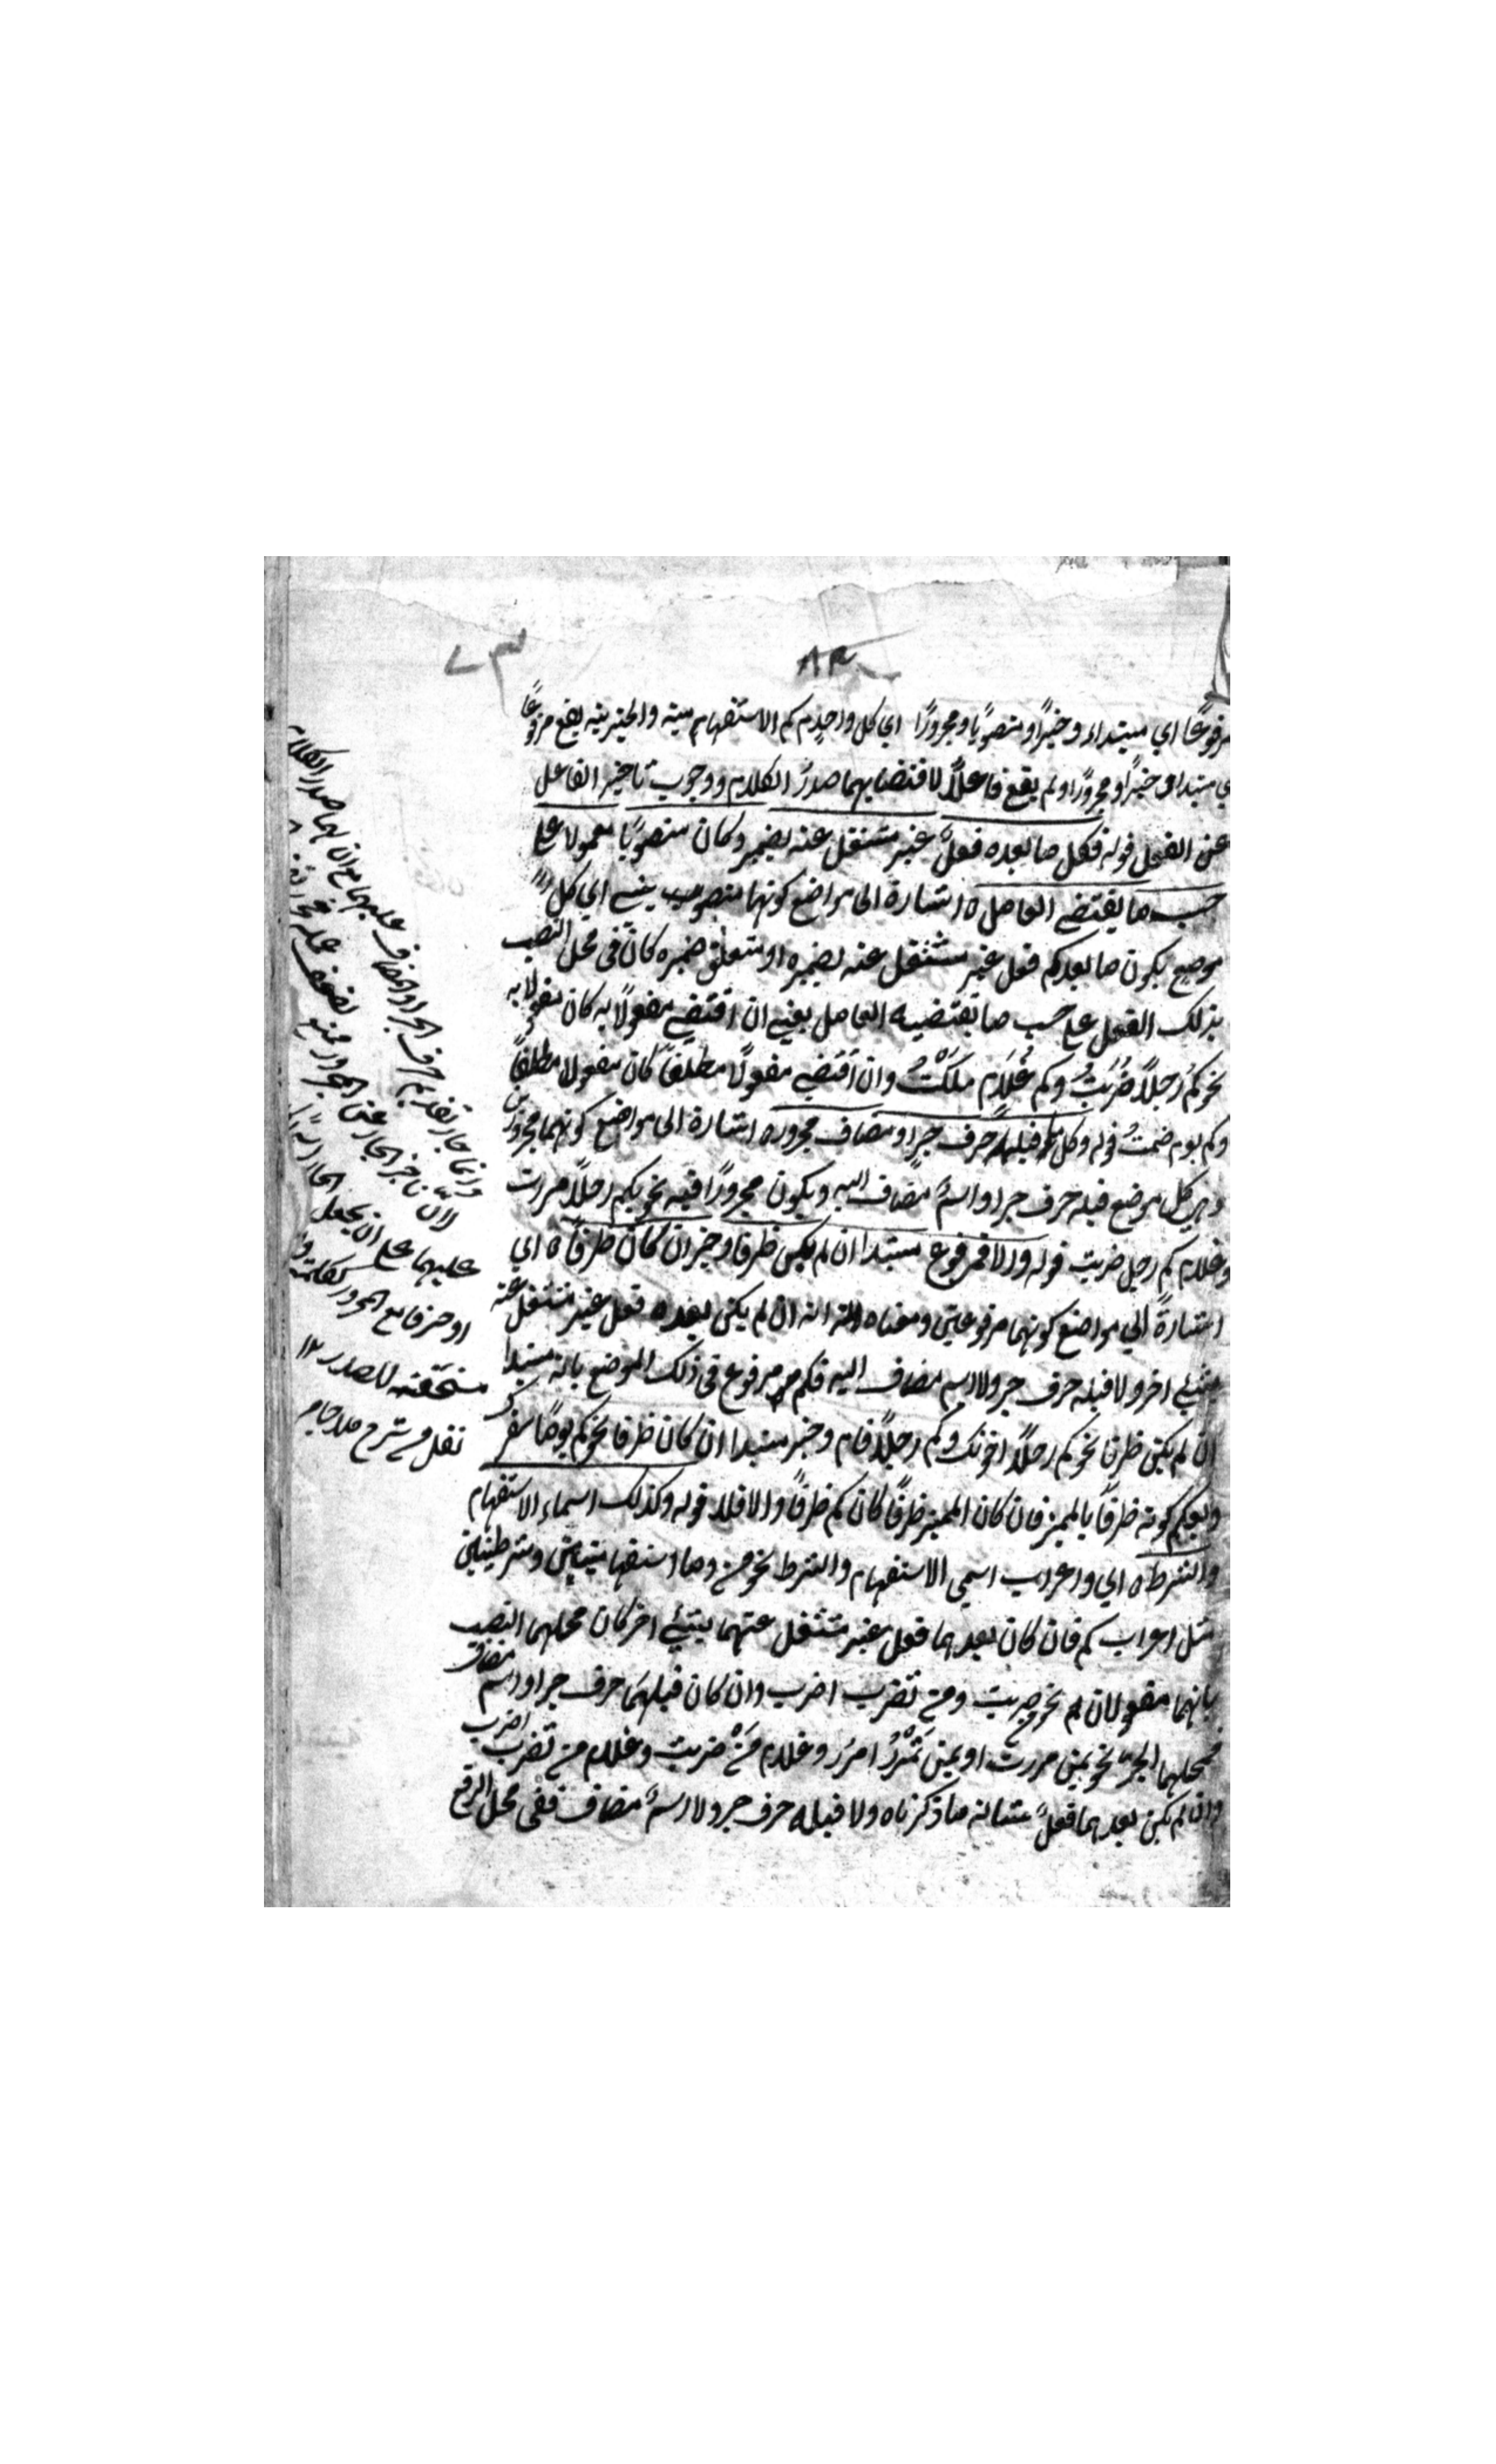 ٨٣
٧٣
مرفوعًا اي مبتداء وخبرًا ومنصوبًا ومجرورًا اي كل واحد من كم الاستفهامية والخبرية يقع مرفوعًا
اي مبتدا وخبرًا ومجرورًا ولم يقع فاعلًا لاقتضائهما صدرُ الكلام ووجوب تاخير الفاعل
عن الفعل قوله فكل ما بعده فعلٌ غير مشتغل عنه بضمير وكان منصوبًا معمولا على
حسب ما يقتضي العامل ه اشارة الى مواضع كونهما منصوب يعني اي كل
موضع يكون ما بعدكم فعل غير مشتغل عنه بضميره او متعلق ضميره كان في محل النصب
بذلك الفعل على حسب ما تقتضيه العامل يعني ان اقتضي مفعولًا به كان مفعولا به
نحو كم رجلًا ضربتُ وكم غُلَام ملكْتُ وان اقتضي مفعولًا مطلقًا كان مفعولا مطلقًا
وكم يوم صمتُ قوله وكل ما قبله حرف جر او مضاف مجرور ه اشارة الى مواضع كونهما مجرورين
وهي كل موضع قبله حرف جر او اسمٌ مضاف اليه ويكون مجرورًا فيه نحو بكم رجلًا مررت
وغلام كم رجل ضربت قوله والا فمرفوع مبتدا ان لم يكن ظرفا وخبر ان كان ظرفًا ه اي
اشارةً الي مواضع كونهما مرفوعين ومعناه انه ان لم يكن بعده فعل غير مشتغل عنه
بشيء اخر ولا قبله حرف جر ولا اسم مضاف اليه فكم مرفوع في ذلك الموضع بانه مبتدا
ان لم يكن ظرفا نحو كم رجلًا اخوتك وكم رجلًا قام وخبر مبتدا ان كان ظرفا نحو كم يومًا سفرك
ويعلم كونه ظرفًا بالمميز فان كان المميز ظرفًا كان كم ظرفًا والا فلا قوله وكذلك اسماء الاستفهام
والشرط ه اي واعراب اسمي الاستفهام والشرط نحو من وما استفهاميتين وشرطيتين
مثل اعراب كم فان كان بعدهما فعل غير مشتغل عنهما بشيء اخر كان محلهما النصب
بانهما مفعولان نحو من ضربت ومن تضرب اضرب وان كان قبلهما حرف جر او اسم مضاف
فمحلهما الجر نحو بمن مررت او بمن تَمْرُرْ امرُر وغلام مَنْ ضربت وغلام من تضرب اضرب
وان لم يكن بعدهما فعلٌ شانه ما ذكرناه ولا قبله حرف جر ولا اسمٌ مضاف ففي محل الرفع
وانما جاز تقديم حرف الجر او المضاف عليهما مع ان لهما صدر الكلام
لان تاخير الجار عن المجرور ممتنع لضعف عمله
عليهما على ان يجعل الجار
او حرفا مع المجرور ككلمة
مستحقة للصدر ١٢
نقل من شرح ملا جامي